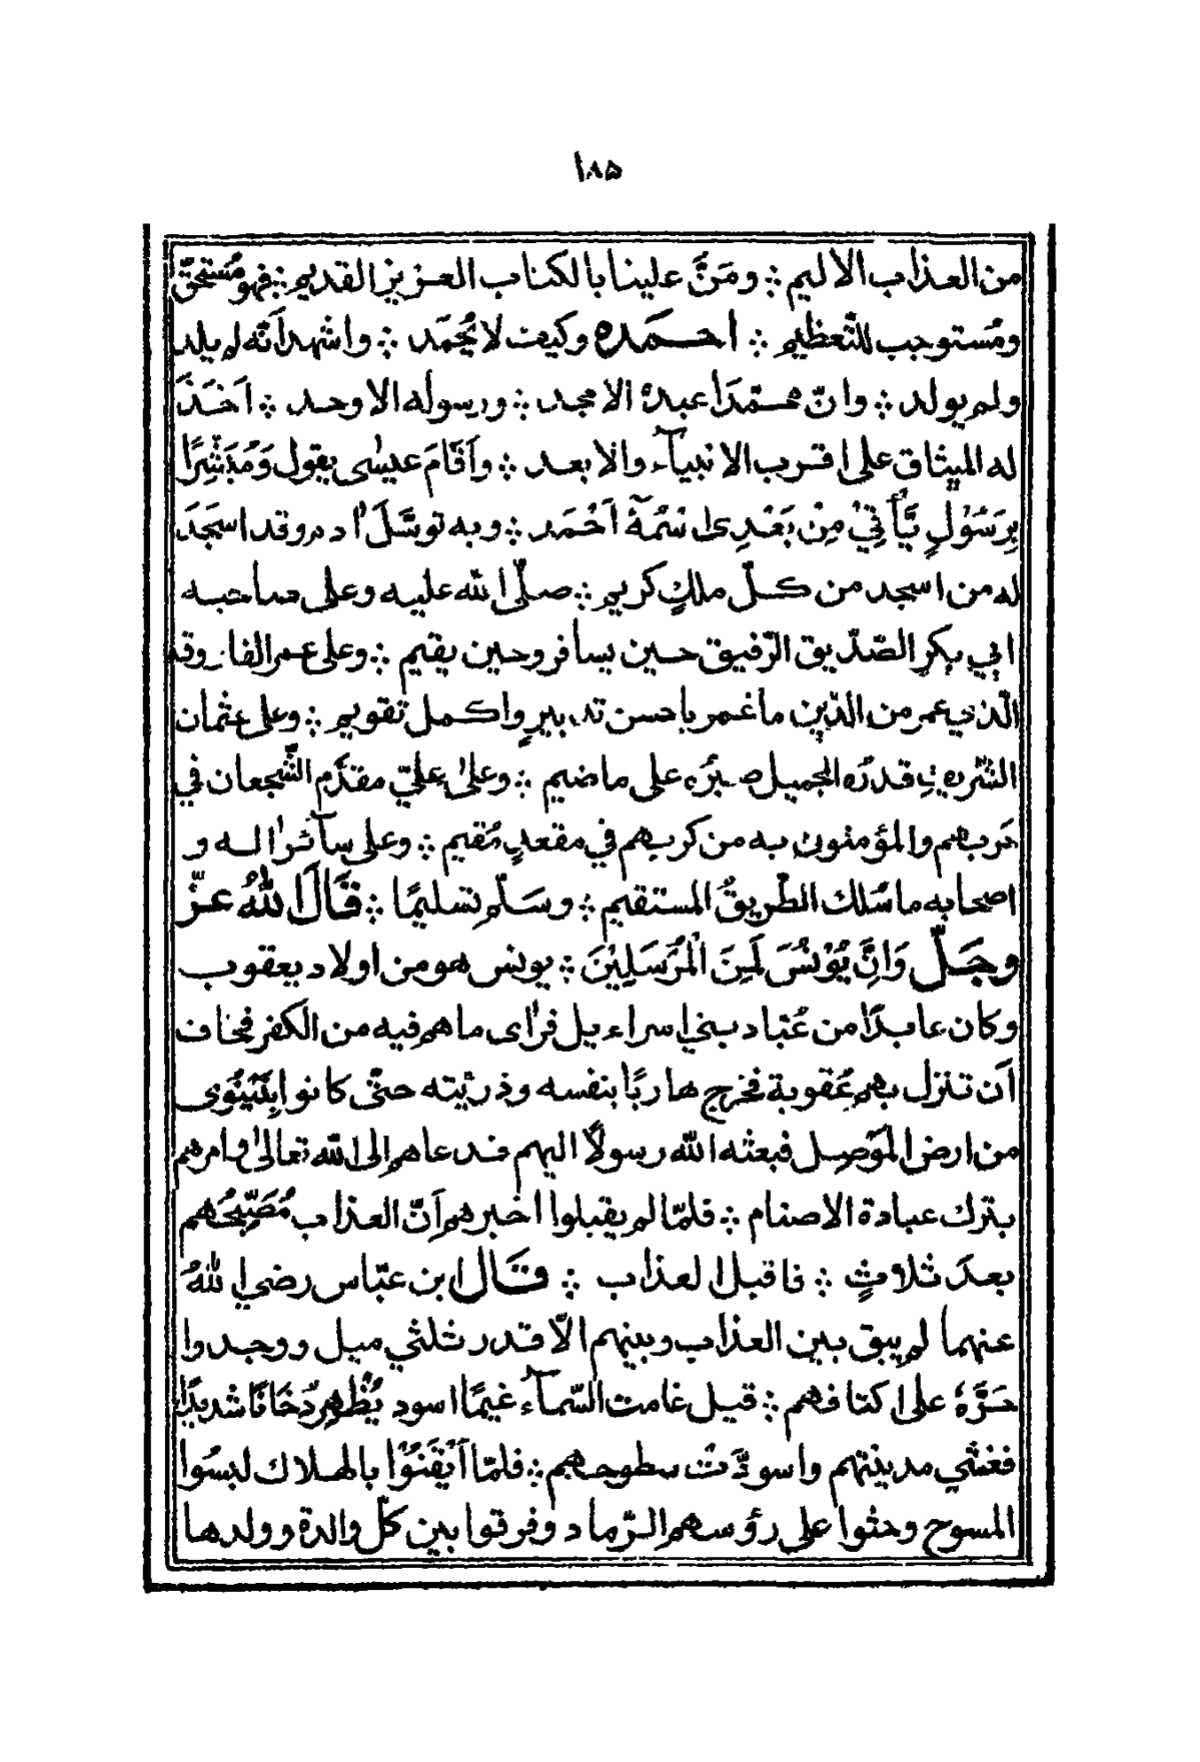 ١٨٥
من العذاب الاليم ؞ ومَنَّ علينا بالكتاب العزيز القديم ؞ فهو مُستحقّ
ومُستوجب للتّعظيم ؞ احمَده وكيف لا يُحْمَد ؞ واشهد اَنّه لم يلد
ولم يولد ؞ وانّ محمّدًا عبدهُ الامجد ؞ ورسوله الاوحد ؞ اَخَذَ
له الميثاق على اقرب الانبيآء والابعد ؞ واَقَامَ عيسٰى يقول وَمُبَشِّرًا
بِرَسُوْلٍ يَّأْتِيْ مِنْ بَعْدِي اسْمُهٗٓ اَحْمَد ؞ وبه توسَّلَ اٰدم وقد اسجَدَ
له من اسجد من كلّ ملكٍ كريم ؞ صلّى الله عليه وعلى صاحبه
ابي بكرِ الصّدّيق الرّفيق حين يسافر وحين يقيم ؞ وعلى عمر الفاروق
الّذي عمر من الدّين ما غمر باحسن تدبيرٍ واكمل تقويم ؞ وعلى عثمان
الشّريف قدرُه الجميل صبرُه على ما ضيم ؞ وعلىٰ عليّ مقدّم الشّجعان في
حربهم والمؤمنون به من كربهم في مقعدٍ مُقيم ؞ وعلى سآئر اٰله و
اصحابه ما سُلك الطّريقُ المستقيم ؞ وسَلّم تسليمًا ؞ قَالَ اللهُ عزّ
وجَلّ وَاِنَّ يُوْنُسَ لَمِنَ الْمُرْسَلِيْنَ ؞ يونس هو من اولاد يعقوب
وكان عابدًا من عُبّاد بني اسراءيل فرأى ما هم فيه من الكفر فخاف
اَن تنزل بهم عُقوبة فخرج هاربًا بنفسه وذرّيّته حتّى كانوا بِنَيْنَوٰى
من ارض المَوْصِل فبعثه الله رسولًا اليهم فدعاهم الى الله تعالىٰ وامرهم
بترك عبادة الاصنام ؞ فلمّا لم يقبلوا اخبرهم اَنّ العذاب مُصَبِّحُهم
بعدَ ثلاثٍ ؞ فاقبل العذاب ؞ قَال ابن عبّاس رضي اللهُ
عنهما لم يبق بين العذاب وبينهم الّا قدر ثلثي ميل ووجدوا
حَرَّهٗ على اكتافهم ؞ قيل غامت السّمآء غيمًا اسود يُظْهِر دُخَانًا شديدًا
فغشي مدينتهم واسودَّت سطوحهم ؞ فلمّا اَيْقَنُوْا بالهلاك لبسُوا
المسوح وحثوا على رؤسهم الرّماد وفرقوا بين كلّ والدة وولدها